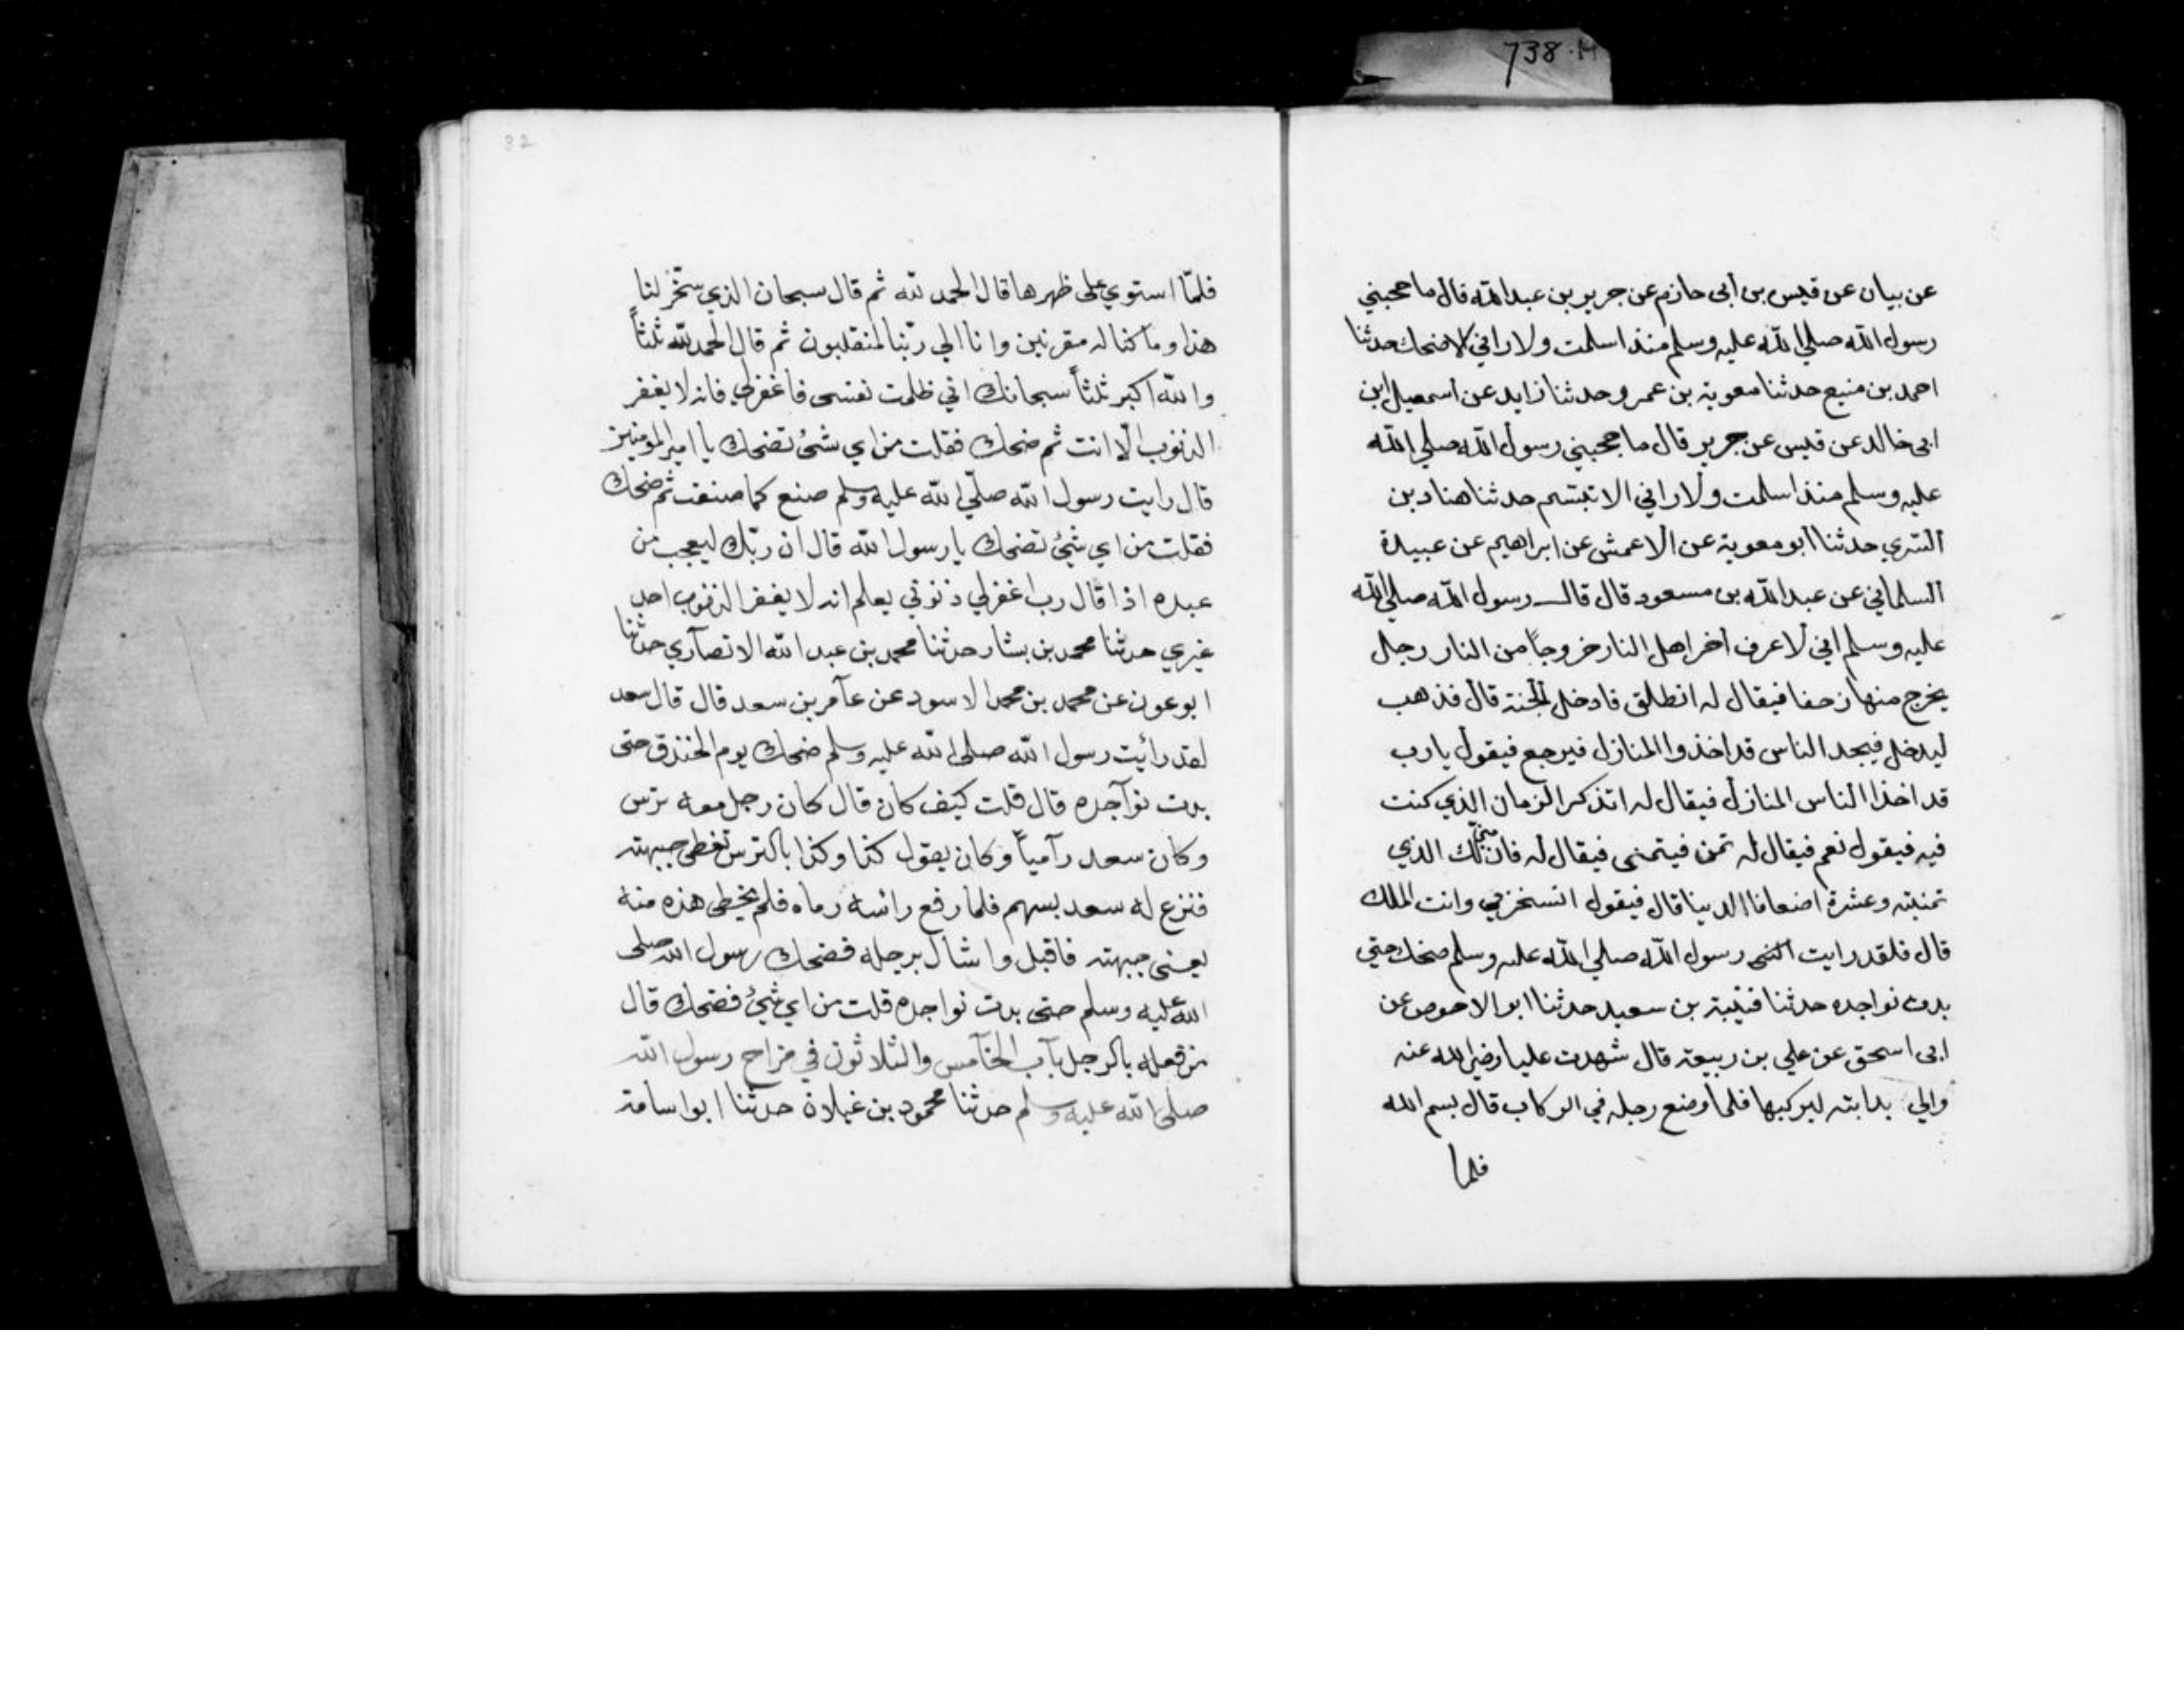 738.H
عن بيان عن قيس بن أبى حازم عن جرير بن عبد الله قال ما حجبني
رسول الله صلي الله عليه وسلم منذ اسلمت ولا راني الا ضحك حدثنا
احمد بن منيع حدثنا معوية بن عمرو حدثنا زايد عن اسمعيل ابن
ابى خالد عن قيس عن جرير قال ما حجبني رسول الله صلي الله
عليه وسلم منذ اسلمت ولا راني الا تبتسم حدثنا هناد بن
السري حدثنا أبو معوية عن الاعمش عن ابراهيم عن عبيدة
السلماني عن عبد الله بن مسعود قال قال رسول الله صلي الله
عليه وسلم اني لا عرف اخر اهل النار خروجاً من النار رجل
يخرج منها زحفا فيقال له انطلق فادخل الجنة قال فذهب
ليدخل فيجد الناس قد اخذوا المنازل فيرجع فيقول يا رب
قد اخذ الناس المنازل فيقال له اتذكر الزمان الذي كنت
فيه فيقول نعم فيقال له تمن فيتمنى فيقال له فان لك الذي
تمنيته وعشرة اضعافا الدينا قال فيقول اتسخر بي وانت الملك
قال فلقد رايت النبى رسول الله صلي الله عليه وسلم ضحك حتي
بدت نواجده حدثنا قتيبة بن سعيد حدثنا ابو الاحوص عن
ابى اسحق عن علي بن ربيعة قال شهدت عليا رضي الله عنه
والي بدابته ليركبها فلما وضع رجله في الركاب قال بسم الله
فلما
32
فلمّا استوي على ظهرها قال الحمد لله ثم قال سبحان الذي سخّر لنا
هذا وما كنا له مقرنين وانا الي ربّنا لمنقلبون ثم قال الحمد لله ثلثاً
والله اكبر ثلثاً سبحانك اني ظلمت نفسى فاغفرلي فانه لا يغفر
الذنوب الّا انت ثم ضحك فقلت من اي شئ تضحك يا امير المومنين
قال رايت رسول الله صلّي الله عليه وسلم صنع كما صنعت ثم ضحك
فقلت من اي شئ تضحك يا رسول الله قال ان ربّك ليعجب من
عبده اذا قال رب اغفرلي ذنوبي يعلم انه لا يغفر الذنوب احد
غيري حدثنا محمد بن بشار حدثنا محمد بن عبد الله الانصآري حدثنا
ابو عون عن محمد بن محمد الاسود عن عآمر بن سعد قال قال سعد
لقد رأيت رسول الله صلى الله عليه وسلم ضحك يوم الخندق حتى
بدت نوآجده قال قلت كيف كان قال كان رجل معه ترس
وكان سعد رآمياً وكان يقول كذا وكذا بالترس تغطى جبهته
فنزع له سعد بسهم فلما رفع رائسه رماه فلم يخطى هذه منه
يعنى جبهته فاقبل واشال برجله فضحك رسول الله صلى
الله عليه وسلم حتى بدت نواجده قلت من اي شئ فضحك قال
من فعله بالرجل بآب الخآمس والثلاثون في مزاح رسول الله
صلى الله عليه وسلم حدثنا محمود بن غيلان حدثنا ابو اسامة